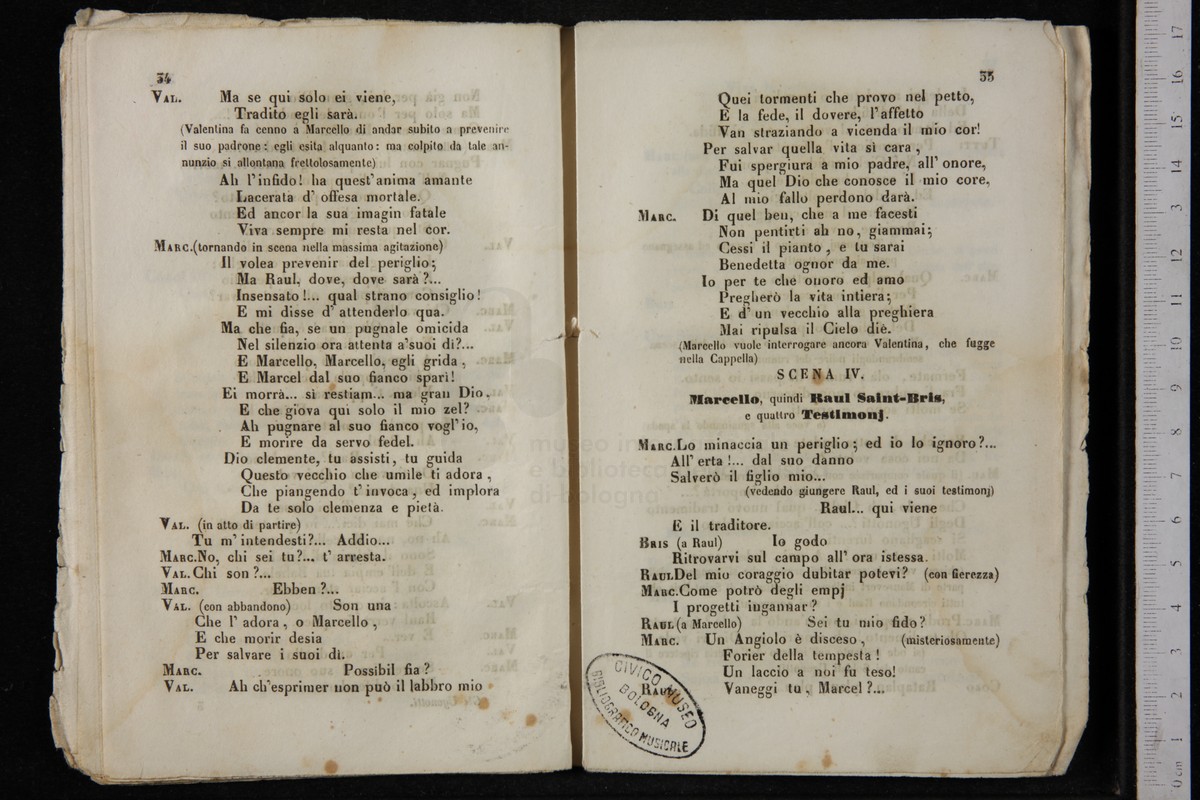 34
VAL. Ma se qui solo ei viene,
Tradito egli sarà.
(Valentina fa cenno a Marcello di andar subito a prevenire
il suo padrone: egli esita alquanto: ma colpito da tale an-
nunzio si allontana frettolosamente)
Ah l'infido! ha quest'anima amante
Lacerata d' offesa mortale.
Ed ancor la sua imagin fatale
Viva sempre mi resta nel cor.
MARC.(tornando in scena nella massima agitazione)
Il volea prevenir del periglio;
Ma Raul, dove, dove sarà?...
Insensato!... qual strano consiglio!
E mi disse d' attenderlo qua.
Ma che fia, se un pugnale omicida
Nel silenzio ora attenta a'suoi dì?...
E Marcello, Marcello, egli grida,
E Marcel dal suo fianco sparì!
Ei morrà... sì restiam... ma gran Dio,
E che giova qui solo il mio zel?
Ah pugnare al suo fianco vogl'io,
E morire da servo fedel.
Dio clemente, tu assisti, tu guida
Questo vecchio che umile ti adora,
Che piangendo t'invoca, ed implora
Da te solo clemenza e pietà.
VAL. (in atto di partire)
Tu m'intendesti?... Addio...
MARC.No, chi sei tu?... t' arresta.
VAL.Chi son?...
MARC. Ebben?...
VAL. (con abbandono) Son una
Che l' adora, o Marcello,
E che morir desia
Per salvare i suoi dì.
MARC. Possibil fia?
VAL. Ah ch'esprimer non può il labbro mio
35
Quei tormenti che provo nel petto,
E la fede, il dovere, l'affetto
Van straziando a vicenda il mio cor!
Per salvar quella vita sì cara,
Fui spergiura a mio padre, all' onore,
Ma quel Dio che conosce il mio core,
Al mio fallo perdono darà.
MARC. Di quel ben, che a me facesti
Non pentirti ah no, giammai;
Cessi il pianto, e tu sarai
Benedetta ognor da me.
Io per te che onoro ed amo
Pregherò la vita intiera;
E d' un vecchio alla preghiera
Mai ripulsa il Cielo diè.
(Marcello vuole interrogare ancora Valentina, che fugge
nella Cappella)
SCENA IV.
Marcello, quindi Raul Saint-Bris,
e quattro Testimonj.
MARC.Lo minaccia un periglio; ed io lo ignoro?...
All' erta!... dal suo danno
Salverò il figlio mio...
(vedendo giungere Raul, ed i suoi testimonj)
Raul... qui viene
E il traditore.
BRIS (a Raul) Io godo
Ritrovarvi sul campo all' ora istessa.
RAULDel mio coraggio dubitar potevi? (con fierezza)
MARC.Come potrò degli empj
I progetti ingannar?
RAUL(a Marcello) Sei tu mio fido?
MARC. Un Angiolo è disceso, (misteriosamente)
Forier della tempesta!
Un laccio a noi fu teso!
RAUL Vaneggi tu, Marcel?...
CIVICO MUSEO
BIBLIOGRAFICO MUSICALE
BOLOGNA